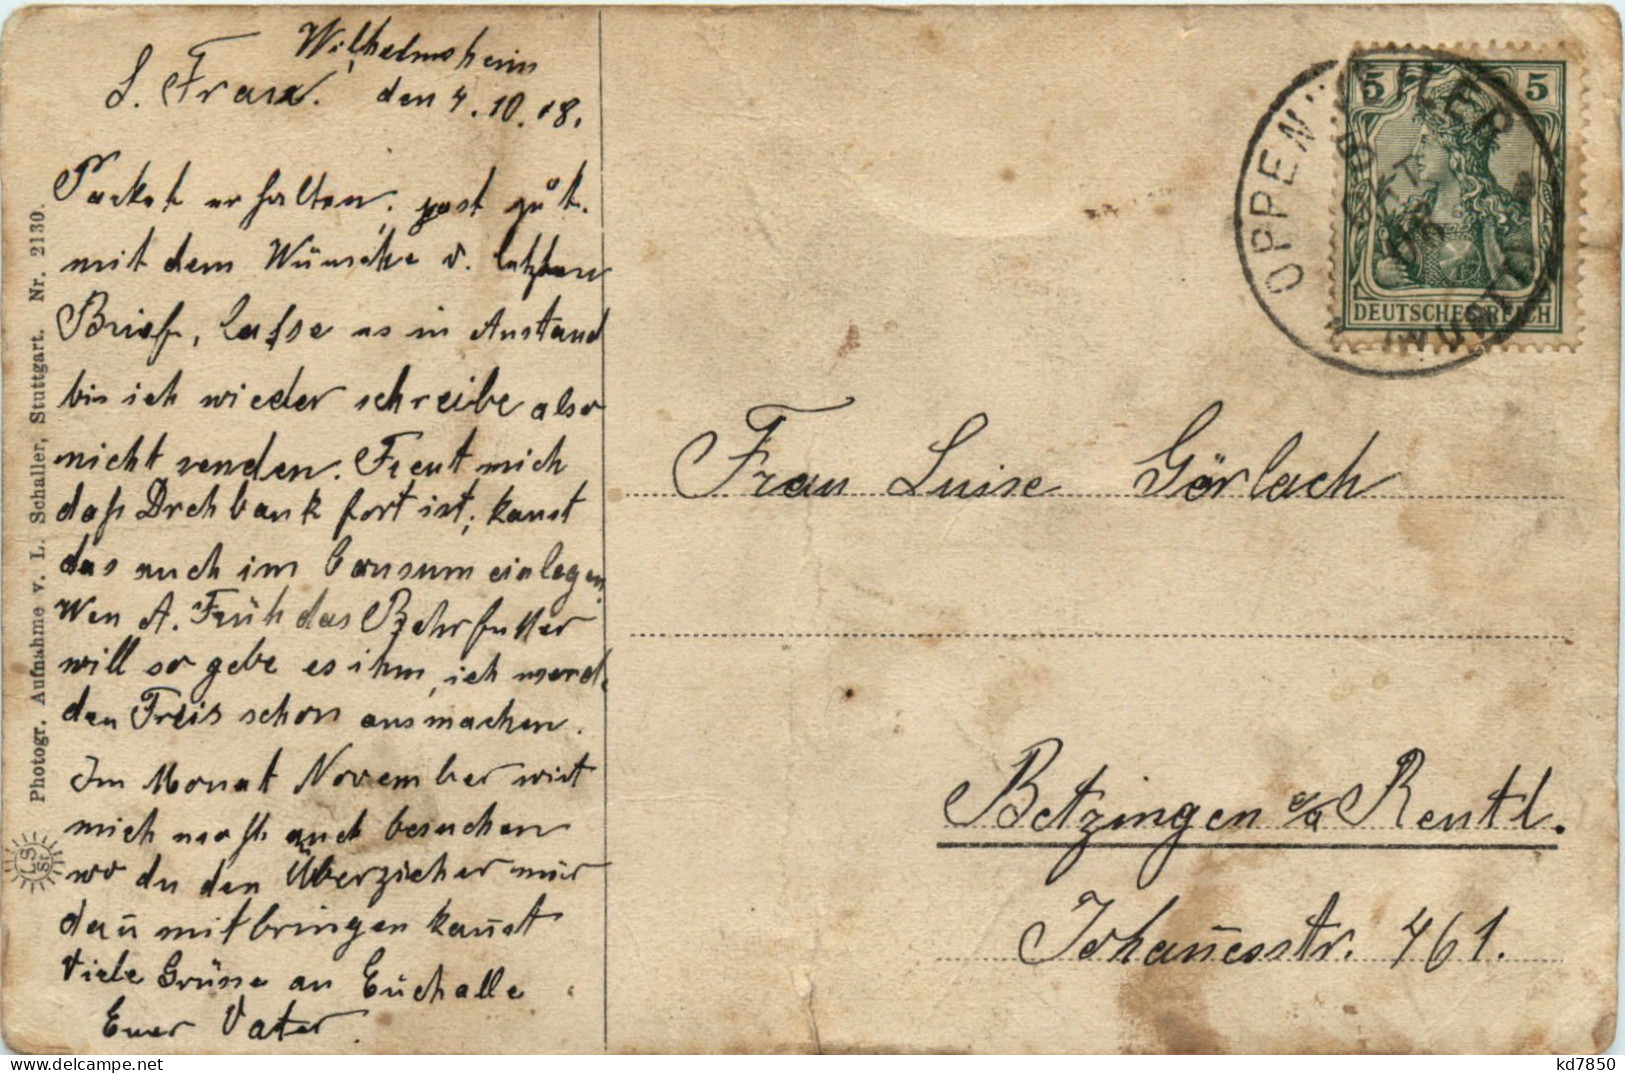 Wilhelmsheim
L. Frau. den 4.10.08.
Packet erhalten, past gut.
mit dem Wünsche v. letzten
Brief, lasse es in Anstand
bis ich wieder schreibe also
nicht senden. Freut mich
daß Drehbank fort ist, kanst
das auch im Consum einlegen.
Wen A. Früh das Bohrfutter
will so gebe es ihm, ich werd
den Preis schon ausmachen.
Im Monat November wirst
mich noch auch besuchen
wo du den Überzieher mir
dan̄ mitbringen kan̄st
Viele Grüsse an Euch alle
Euer Vater.
Photogr. Aufnahme v. L. Schaller, Stuttgart. Nr. 2130.
LS
St.
5 5
DEUTSCHES REICH
OPPENWEILER
OKT
08
WÜRTT.
Frau Luise Görlach
Betzingen o/a Reutl.
Johan̄esstr. 461.
kd7850